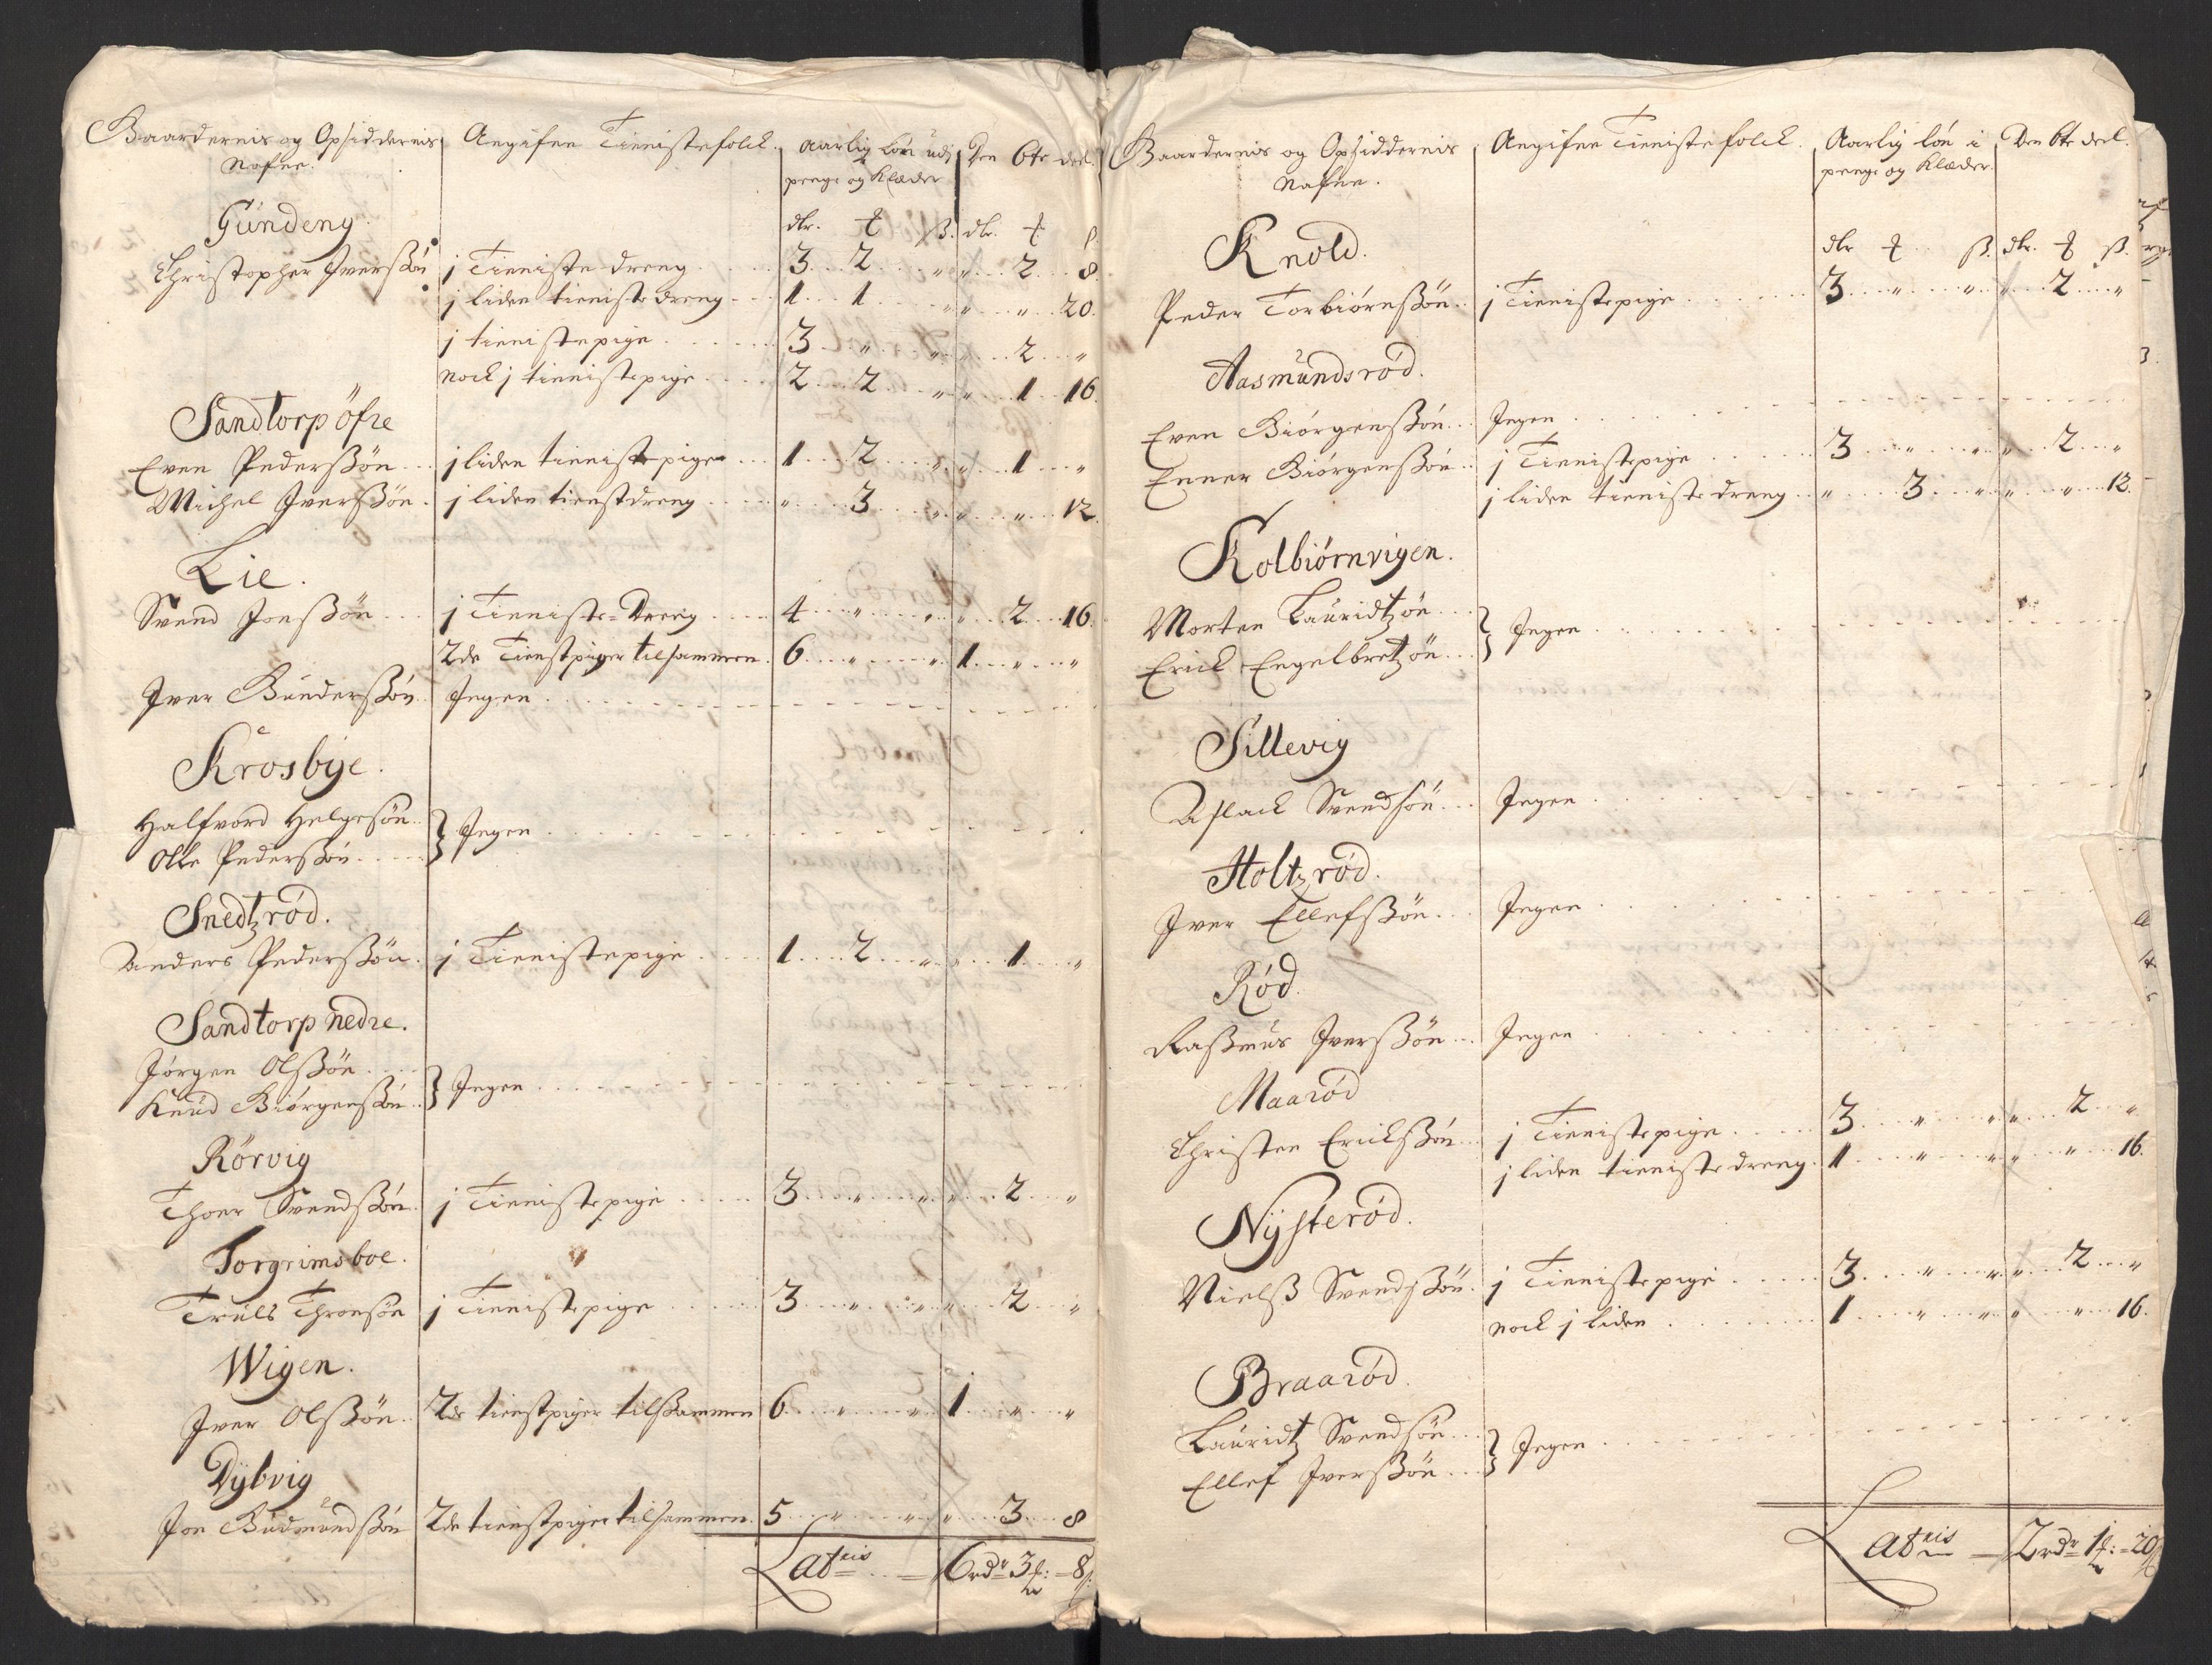 Gaardernis og Opsiddernis Nafne. | Angifne Tienistefolck. | Aarlig Løn udj penge og Klæder | Den 6te deel.
dlr. ß. dlr.
Gundeng.
Christopher Jverßøn | j Tieniste dreng | 3 2 " | " 2 8
j liden tienistedreng | 1 1 " | " " 20.
j tienistepige | 3 " " | " 2 "
nock j tienistepige | 2 2 " | " 1 16.
Sandtorp öfre
Even Pederßøn | j liden tienistepige | 1 2 " | " 1 "
Michel Jverßøn | j liden tienstdreng | " 3 " | " " 12.
Lie.
Svend Jonßøn | j Tieniste-Dreng | 4 " " | " 2 16.
2de Tienstpiger tilsammen | 6 " " | 1 " "
Jver Gunderßøn | Jngen
Krosbye.
Halfvord Helgesøn
Olle Pederßøn | } Jngen
Snedtzrød.
Anders Pederßøn | j Tienistepige | 1 2 " | " 1 "
Sandtorp nedre.
Jørgen Olßøn
Knud Biørgenßøn | } Jngen
Rörvig
Thoer Svendßøn | j Tienistepige | 3 " " | " 2 "
Torgrimsboe.
Truls Thronsøn | j Tienistepige | 3 " " | " 2 "
Wigen.
Jver Olßøn | 2de tienstpiger tilßammen | 6 " " | 1 " "
Dybvig
Jon Gudmundßøn | 2de tienstpiger tilsammen | 5 " " | " 3 8
Lateris 6 rdr 3 : 8
Gaardernis og Opsiddernis Nafne. | Angifne Tienistefolck. | Aarlig løn i penge og Klæder. | Den 6te deel.
dlr ß. dlr. ß.
Knold.
Peder Torbiørnßøn | j Tienistepige | 3 " " | " 2 "
Aasmundsrød.
Even Biørgenßøn | Jngen
Enner Biørgenßøn | j Tienistepige | 3 " " | " 2 "
j liden tieniste dreng | " 3 " | " " 12.
Kolbiørnvigen.
Morten Lauridtzøn
Erick Engelbretzøn | } Jngen
Sillevig
Aslack Svendsøn | Jngen
Holtzrød.
Jver Ellefßøn | Jngen
Rød.
Raßmus Jverßøn | Jngen
Maarød
Christen Erickßøn | j Tienistepige | 3 " " | " 2 "
j liden tieniste dreng | 1 " " | " " 16.
Nysterød.
Nielß Svendßøn | j Tienistepige | 3 " " | " 2 "
nock j liden | 1 " " | " " 16.
Braarød.
Lauridtz Svendsøn
Ellef Jverßøn | } Jngen
Lateris 2 rdr 1 : 20